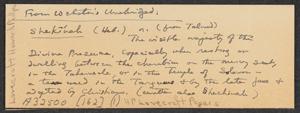 From Webster's Unabridged:
Shekinah (Heb.) n. (from Talmud)
The visible majesty of the
Divine Presence, especially when resting or
dwelling between the cherubim on the mercy seat,
in the Tabernacle, or in the Temple of Solomon —
a term used in the Targums & by the later Jews &
adopted by Christians, (written also Shechinah)
A32500 [162] (1) HP Lovecraft Papers